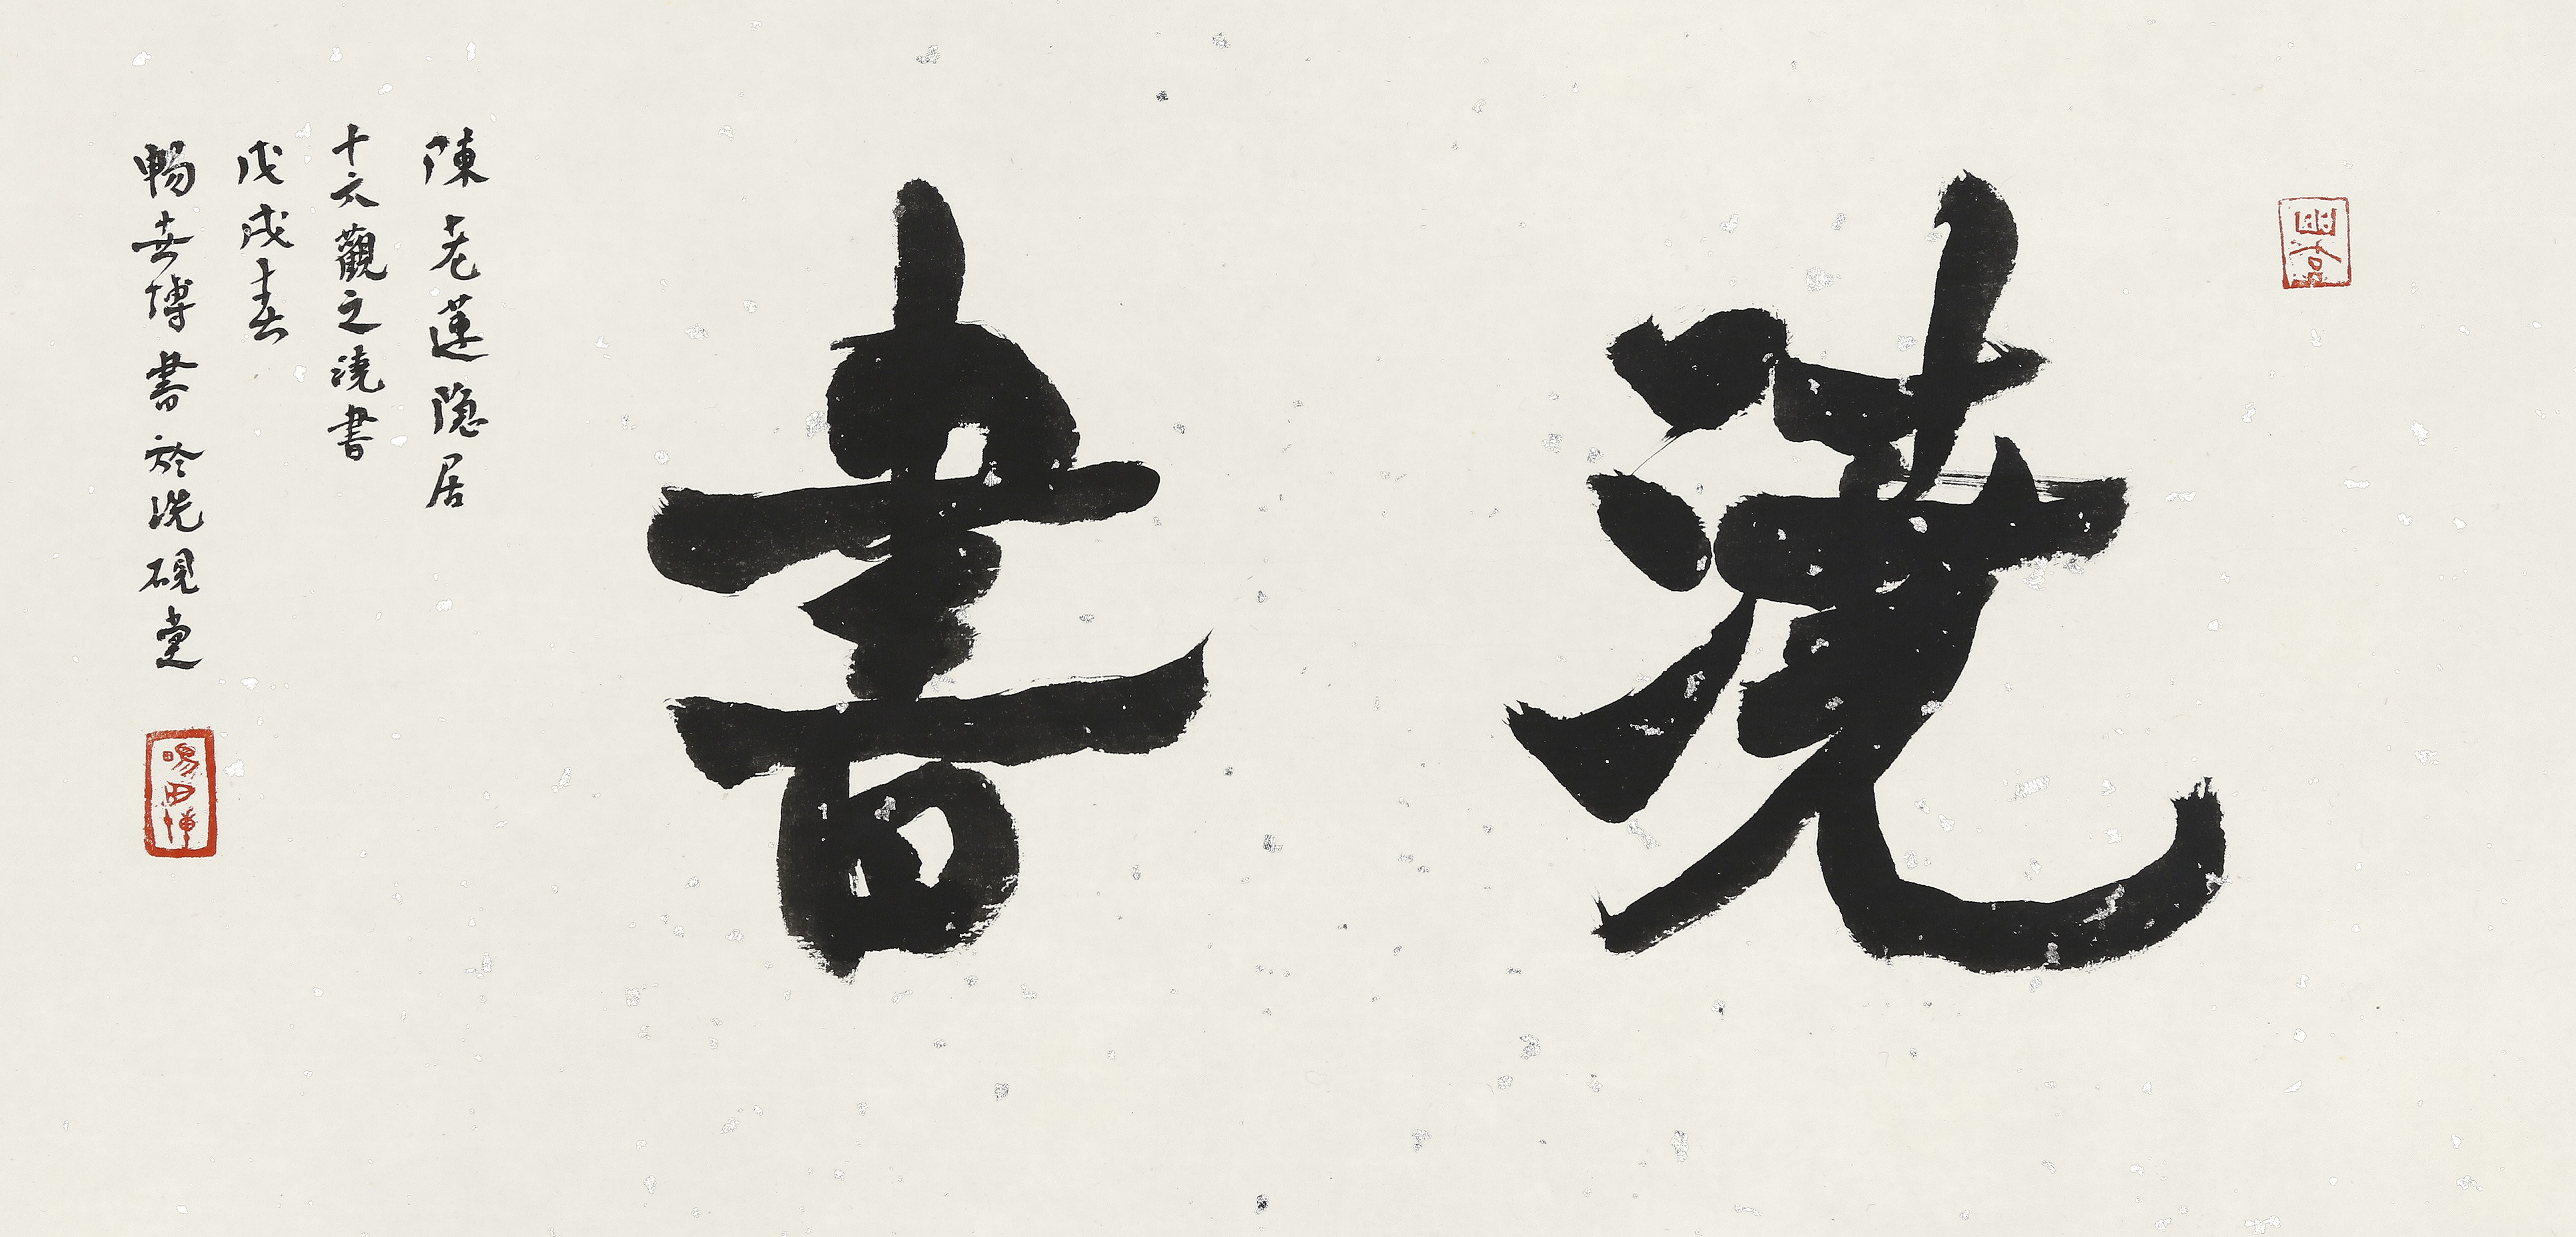 澆書
陳老蓮隱居
十六觀之澆書
戊戌春
暢博書於洗硯堂